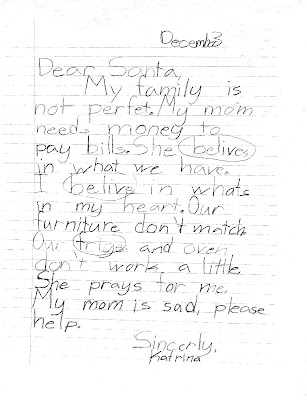 December 3
Dear Santa,
My family is
not perfet. My mom
needs money to
pay bills. She belives
in what we have.
I belive in whats
in my heart. Our
furniture don't match
Our frige and oven
don't work a little.
She prays for me.
My mom is sad, please
help.
Sincerly,
Katrina